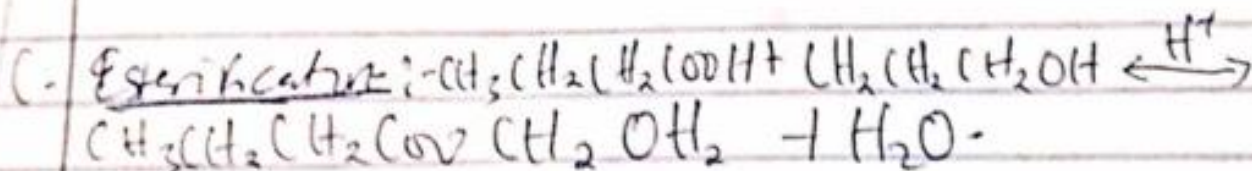 C. Esterification:- CH₃CH₂CH₂COOH + CH₂CH₂CH₂OH ⟷ H⁺
CH₃CH₂CH₂COO CH₂ OH₂ + H₂O.